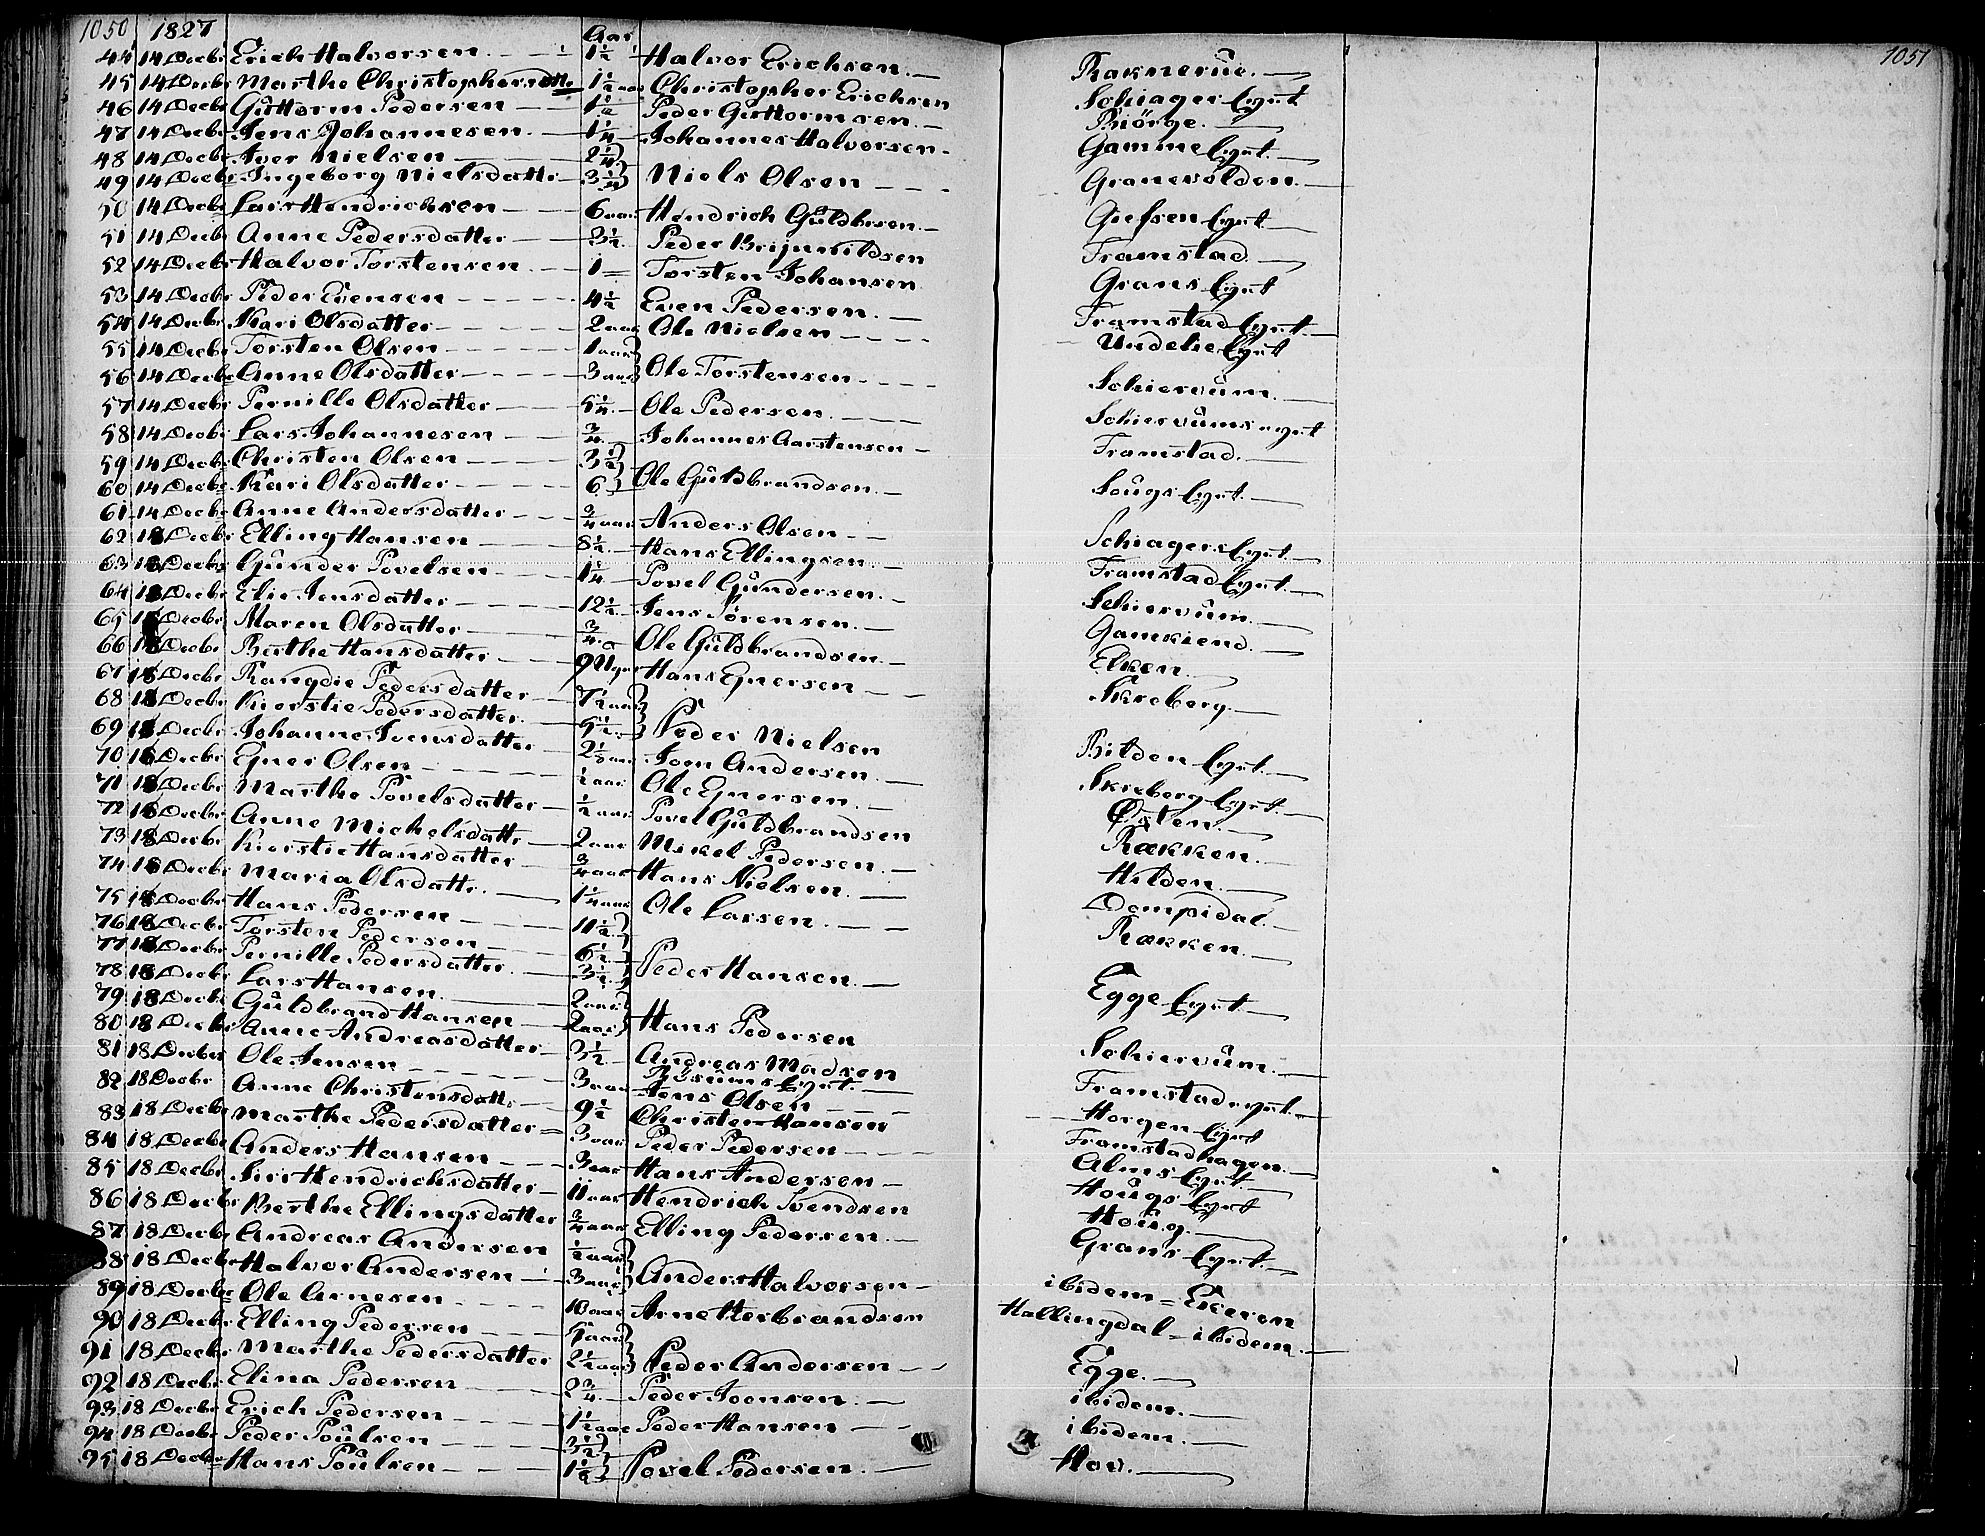 1050 1827 Aar 1051
44 14 Decbr Erich Halvorsen 1½ Halvor Erichsen Raknerue
45 14 Decbr Marthe Christophersdttr 1½ aar Christopher Erichsen Schiager Eyet
46 14 Decbr Guttorm Pedersen 1½ Peder Guttormsen Biörge
47 14 Decbr Jens Johannesen 1¼ Johannes Halvorsen Gamme Eyet
48 14 Decbr Iver Nielsen 2¼
49 14 Decbr Ingeborg Nielsdattr Niels Olsen Granevolden
50 14 Decbr Lars Hendrichsen 6 aar Hendrich Guldbrsen Gjefsen Eyet
51 14 Decbr Anne Pedersdatter 3½ Peder Brijnnildsen Framstad
52 14 Decbr Halvor Torstensen 1 Torsten Johansen Grans Eyet
53 14 Decbr Peder Evensen 4½ Even Pedersen Framstad Eyet
54 14 Decbr Kari Olsdatter 2 aar Ole Nielsen Undelie Eyet
55 14 Decbr Torsten Olsen 1 aar
56 14 Decbr Anne Olsdatter 3 aar Ole Torstensen Schiervum
57 14 Decbr Pernille Olsdatter 5¼ Ole Pedersen Schiervums eyet
58 14 Decbr Lars Johannesen ¾ Johannes Aarstensen Framstad
59 14 Decbr Christen Olsen 3½
60 14 Decbr Kari Olsdatter 6 Ole Guldbrandsen Sougs Eyet
61 14 Decbr Anne Andersdatter ¾ aar Anders Olsen Schiagers Eyet
62 18 Decbr Elling Hansen 8½ Hans Ellingsen Framstad Eyet
63 18 Decbr Gunder Povelsen 1¼ Povel Gundersen Schiervum
64 18 Decbr Elie Jensdatter 12½ Jens Sørensen Gamkiend
65 18 Decbr Maren Olsdatter ¾ Ole Guldbrandsen Elken
66 18 Decbr Berthe Hansdatter 9 Uger Hans Ejnersen Skreberg
67 18 Decbr Rangdie Pedersdatter 7½ aar
68 18 Decbr Kierstie Pedersdatter 5½ Peder Nielsen Bilden Eyet
69 18 Decbr Johanne Ivensdatter Joen Andersen Skreberg Eyet
70 18 Decbr Ejner Olsen ½ aar Ole Ejnersen Østen
71 18 Decbr Marthe Povelsdatter ½ aar Povel Guldbrandsen Rækken
72 18 Decbr Anne Michelsdattr 2 aar Mikel Pedersen Hilden
73 18 Decbr Kierstie Hansdatter ¾ aar Hans Nielsen Dompidal
74 18 Decbr Maria Olsdattr 1¼ aar Ole Larsen Rækken
75 18 Decbr Hans Pedersen 11½
76 18 Decbr Torsten Pedersen 6½
77 18 Decbr Pernille Pedersdatter 3½ Peder Hansen Egge Eyet
78 18 Decbr Lars Hansen 2 aar
79 18 Decbr Guldbrand Hansen 2 aar Hans Pedersen Schiervum
80 18 Decbr Anne Andreasdatter 3½ Andreas Madsen Framstad eyet
81 18 Decbr Ole Jensen 3 aar Jens Olsen Horgen Eyet
82 18 Decbr Anne Christensdattr 9½ Christen Hansen Framstadhagen
83 18 Decbr Marthe Pedersdatter 3 aar Peder Pedersen Alms Eyet
84 18 Decbr Anders Hansen 3 aar Hans Andersen Hougs Eyet
85 18 Decbr Siri Hendrichsdatter 11 aar Hendrich Svendsen Houg
86 18 Decbr Berthe Ellingsdatter ¾ aar Elling Pedersen Grans Eyet
87 18 Decbr Andreas Andersen ½ aar
88 18 Decbr Halvor Andersen 3 aar Anders Halvorsen ibidem = Ekeren
89 18 Decbr Ole Arnesen 10 aar Arne Herbrandsen Hallingdal = ibidem
90 18 Decbr Elling Pedersen 5 aar
91 18 Decbr Marthe Pedersdatter 2½ aar Peder Andersen Egge
92 18 Decbr Elina Pedersen 2¾ Peder Joensen ibidem
93 18 Decbr Erich Pedersen 1½ aar Peder Hansen ibidem
94 18 Decbr Peder Poulsen 3½
95 18 Decbr Hans Poulsen 1½ Povel Pedersen Hov